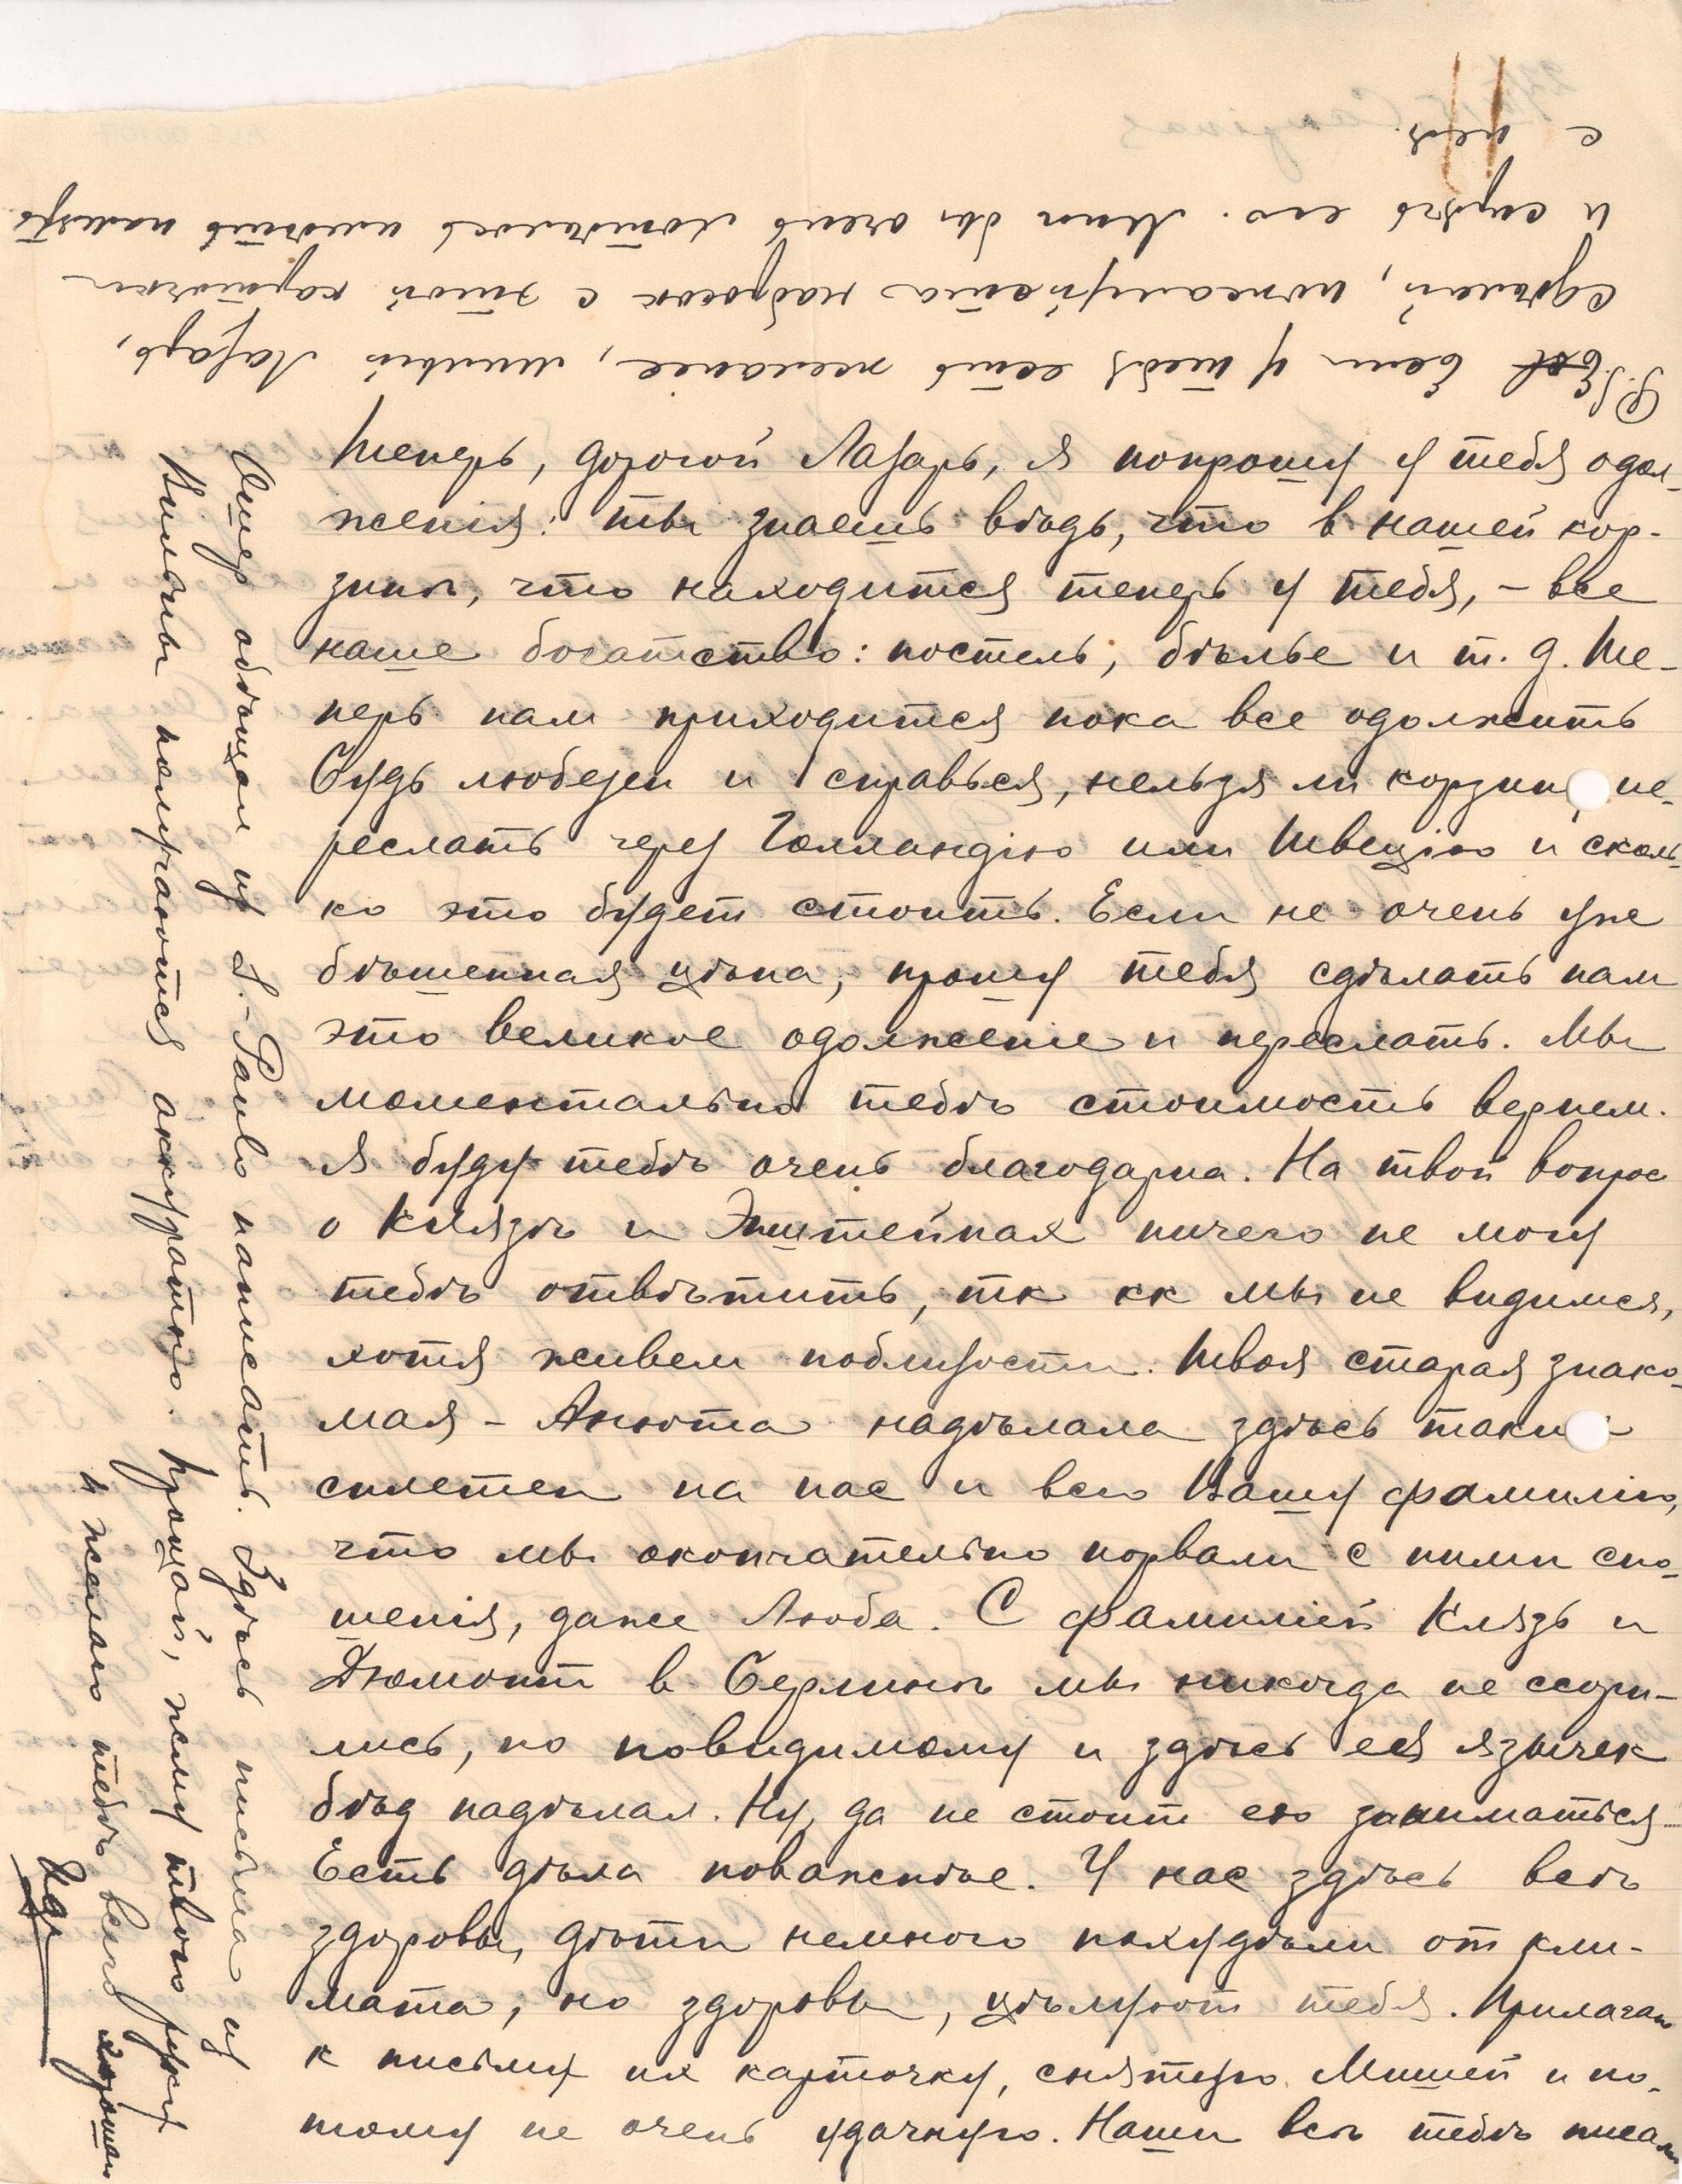 Теперь, дорогой Лазарь, я попрошу у тебя одол-
женія: ты знаешь вѣдь, что в нашей кор-
зинѣ, что находится теперь у тебя, – все
наше богатство: постель, бѣлье и т. д. Те-
перь нам приходится пока все одолжить
Будь любезен и справься, нельзя ли корзину пе-
реслать через Голландію или Швецію и сколь-
ко это будет стоить. Если не очень уже
бѣшенная цѣна, прошу тебя сдѣлать нам
это великое одолженіе и переслать. Мы
моментально тебѣ стоимость вернем.
Я буду тебѣ очень благодарна. На твой вопрос
о Князѣ и Эпштейнах ничего не могу
тебѣ отвѣтить, тк кк мы не видимся,
хотя живем поблизости. Твоя старая знако-
мая – Анюта надѣлала здѣсь таких
сплетен на нас и всю Вашу фамилію,
что мы окончательно порвали с ними сно-
шенія, даже Люба. С фамиліей Князь и
Дюмонт в Берлинѣ мы никогда не ссори-
лись, но повидимому и здѣсь ея язычек
бѣд надѣлал. Ну, да не стоит ею заниматься
Есть дѣла поважнѣе. У нас здѣсь всѣ
здоровы, дѣти немного похудѣли от кли-
мата, но здоровы, цѣлуют тебя. Прилагаю
к письму их карточку, снятую Мишей и по-
тому не очень удачную. Наши всѣ тебѣ писали
Ошер обѣщал из S.-Paulo написать. Здѣсь письма из
Вильны получаются аккуратно. Прощай, жму твою руку
и желаю тебѣ всего хорошаго
Ида
P.S. Если у тебя есть желаніе, милый Лазарь,
сдѣлай, пожалуйста набросок с этой карточки
и снузь его. Мнѣ бы очень хотѣлось имѣть память
с нея.